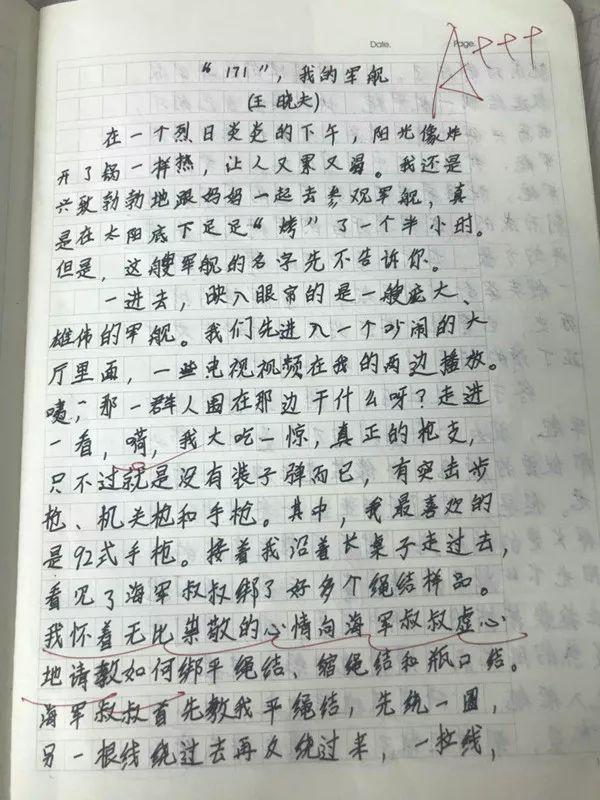 Date.
Page.
A+++
“171”，我的军舰
(王晓夫)
在一个烈日炎炎的下午，阳光像炸
开了锅一样热，让人又累又渴。我还是
兴致勃勃地跟妈妈一起去参观军舰，真
是在太阳底下足足“烤”了一个半小时。
但是，这艘军舰的名字先不告诉你。
一进去，映入眼帘的是一艘庞大、
雄伟的军舰。我们先进入一个吵闹的大
厅里面，一些电视视频在我的两边播放。
咦，那一群人围在那边干什么呀？走进
一看，嗬，我大吃一惊，真正的枪支，
只不过就是没有装子弹而已，有突击步
枪、机关枪和手枪。其中，我最喜欢的
是92式手枪。接着我沿着长桌子走过去，
看见了海军叔叔绑了好多个绳结样品。
我怀着无比崇敬的心情向海军叔叔虚心
地请教如何绑平绳结、缩绳结和瓶口结。
海军叔叔首先教我平绳结，先绕一圈，
另一根线绕过去再又绕过来，一拉线，